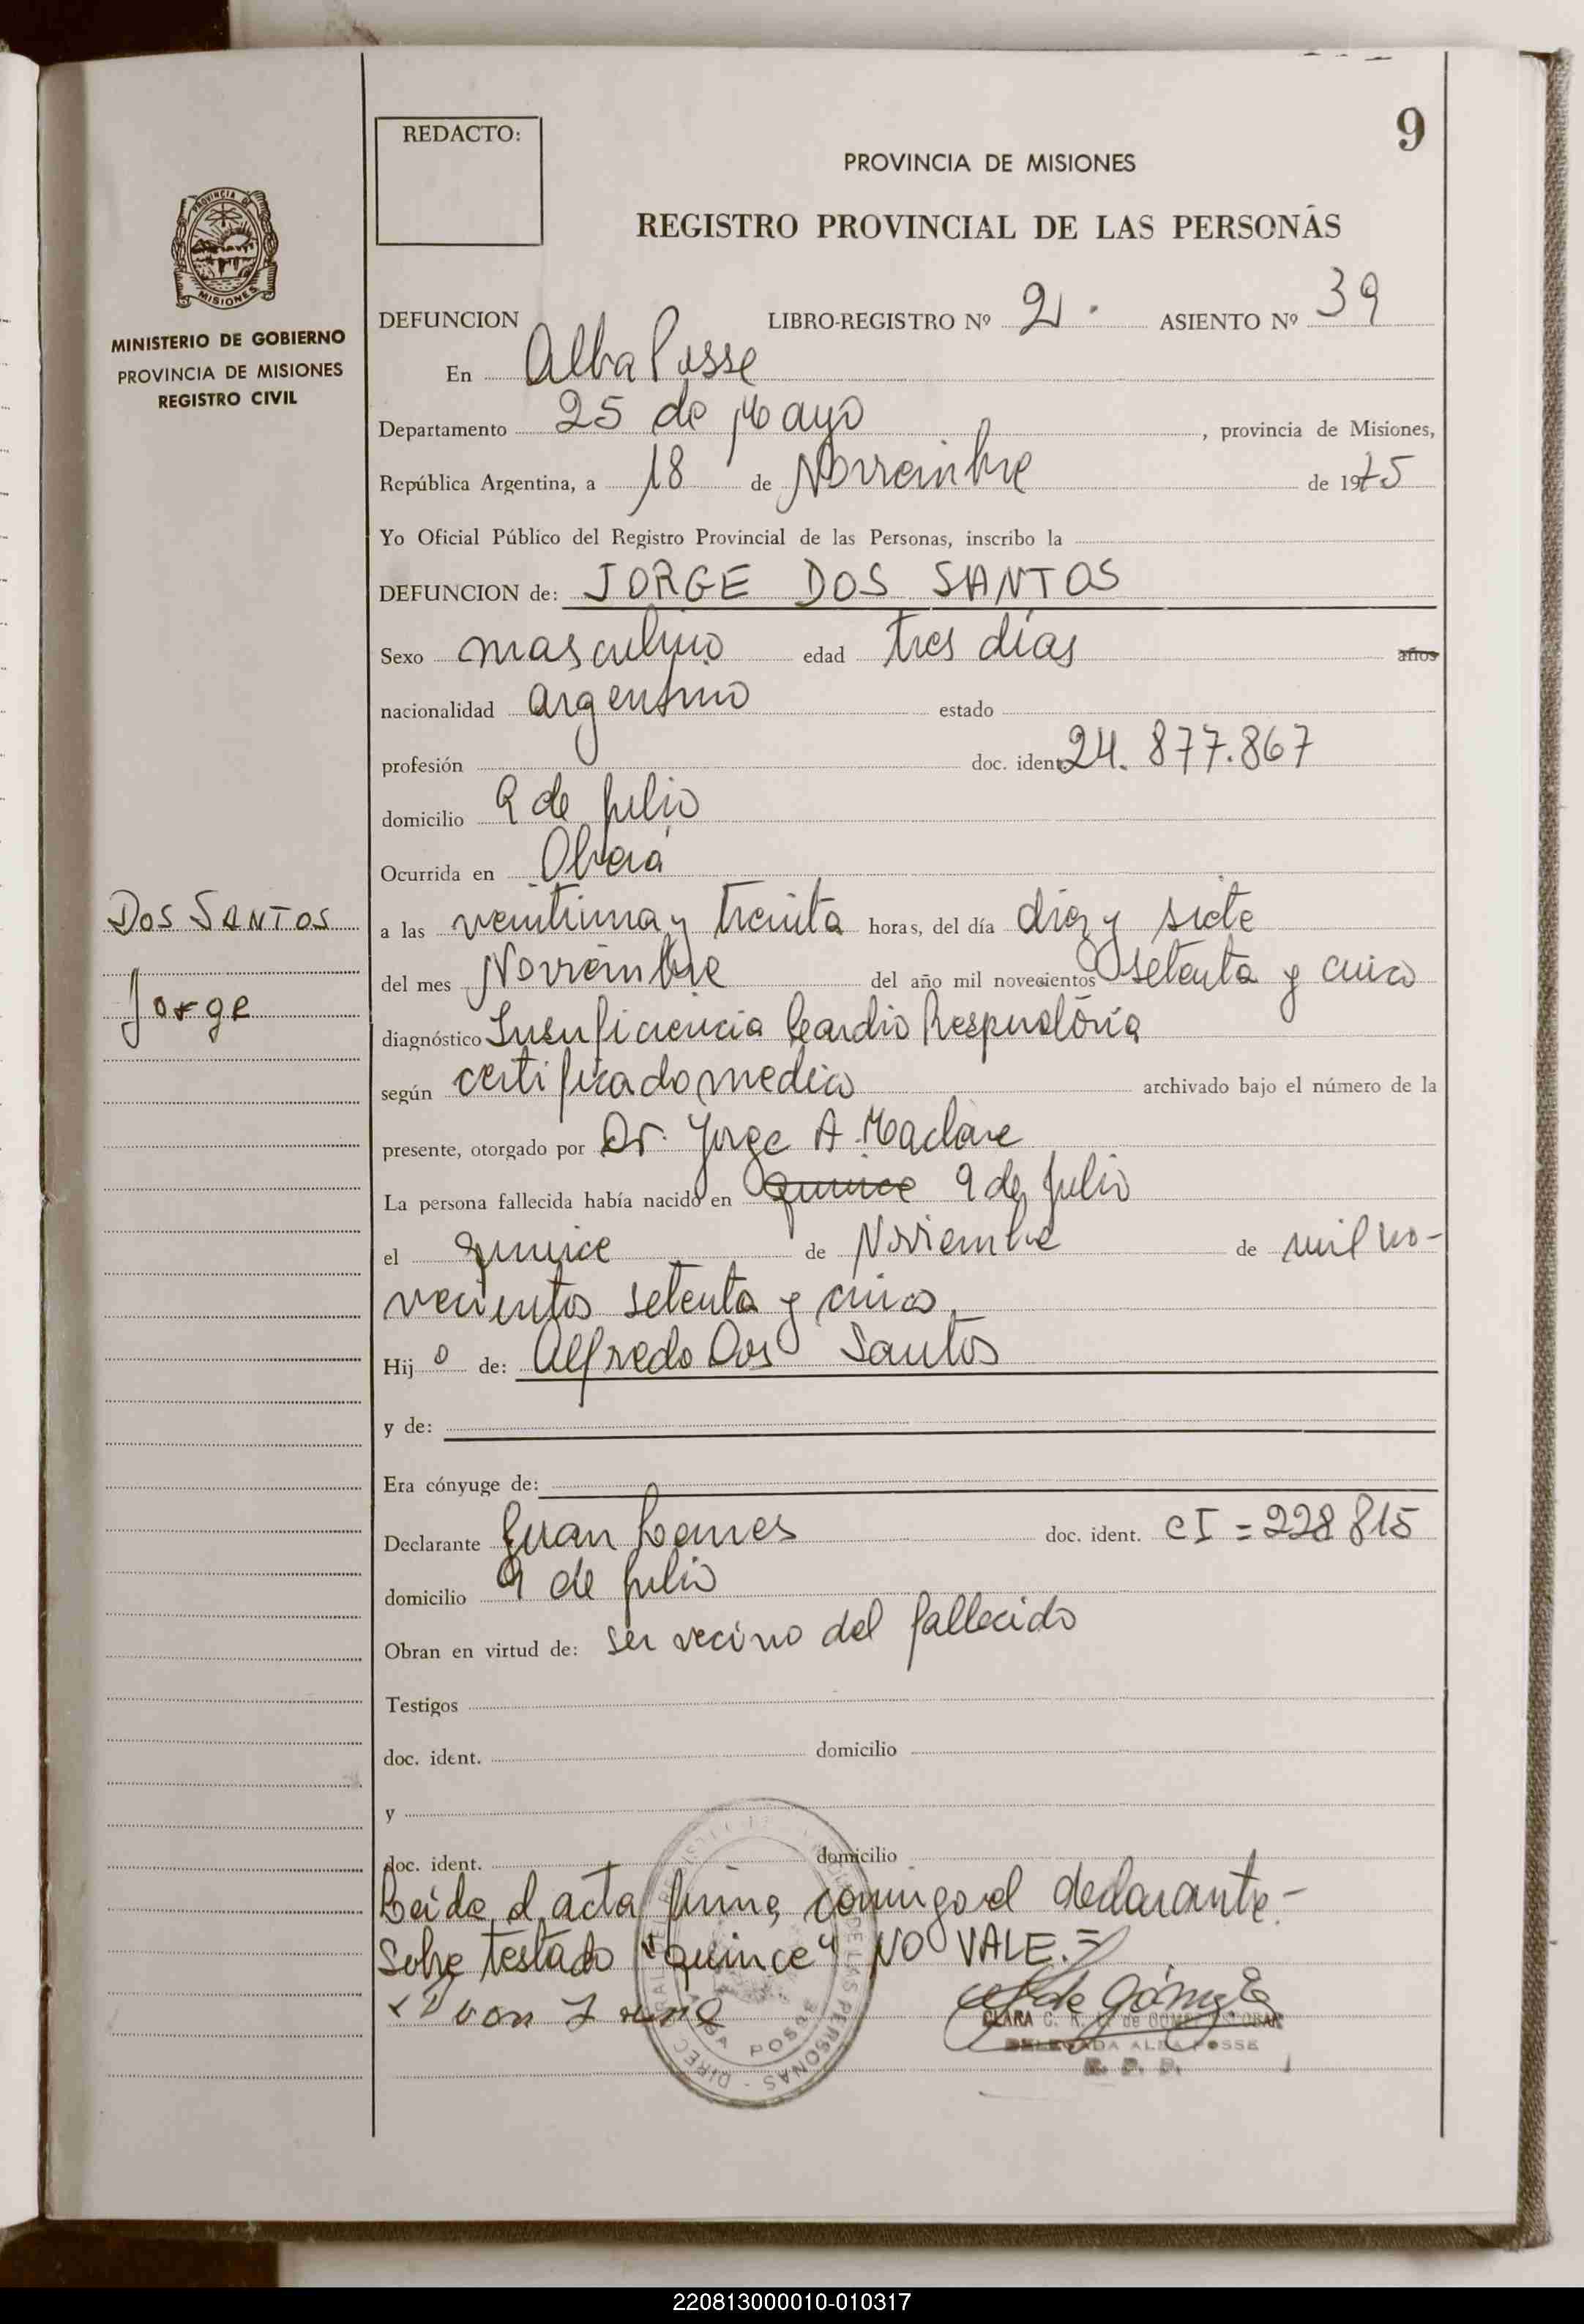 9
REDACTO:
PROVINCIA DE MISIONES
REGISTRO PROVINCIAL DE LAS PERSONAS
MINISTERIO DE GOBIERNO
PROVINCIA DE MISIONES
REGISTRO CIVIL
DEFUNCION LIBRO-REGISTRO Nº 2 ASIENTO Nº 39
En Alba Posse
Departamento 25 de Mayo, provincia de Misiones,
República Argentina, a 18 de Noviembre de 1975
Yo Oficial Público del Registro Provincial de las Personas, inscribo la
DEFUNCION de: JORGE DOS SANTOS
Sexo masculino edad tres días años
nacionalidad argentino estado
profesión doc. ident. 24.877.867
domicilio 9 de Julio
Ocurrida en Oberá
DOS SANTOS
Jorge
a las veintiuna y treinta horas, del día diez y siete
del mes Noviembre del año mil novecientos setenta y cinco
diagnóstico Insuficiencia Cardio Respiratória
según certificado medico archivado bajo el número de la
presente, otorgado por Dr. Jorge A.
La persona fallecida había nacido en quince 9 de Julio
el quince de Noviembre de mil no-
vecientos setenta y cinco
Hijo de: Alfredo Dos Santos
y de:
Era cónyuge de:
Declarante Juan doc. ident. CI = 228815
domicilio 9 de Julio
Obran en virtud de: ser vecino del fallecido
Testigos
doc. ident. domicilio
y
doc. ident. domicilio
Leída el acta firma conmigo el declarante.-
Sobre testado "quince" NO VALE.=
DELEGADA ALBA POSSE
220813000010-010317